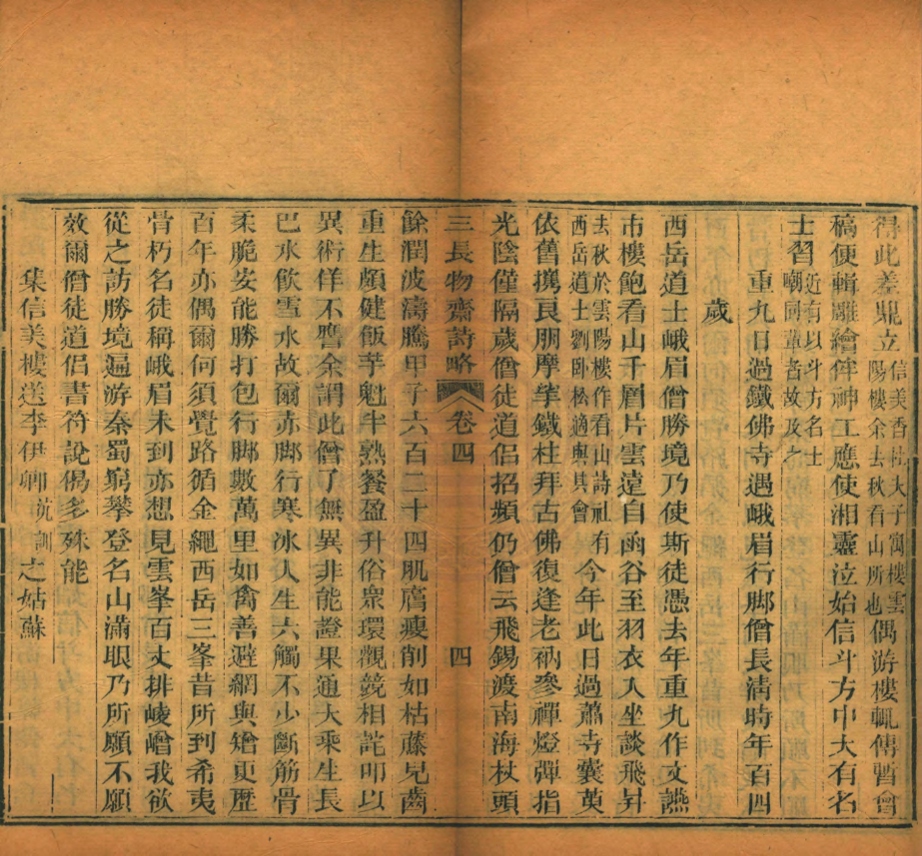 得此差鼎立信美香杜大子寓樓雲陽樓余去秋看山所也偶游樓輒傳暫會
稿便輯雕繪倅神工應使湘靈泣始信斗方中大有名
士習近有以斗方名士嘲同輩者故及之
重九日過鐵佛寺遇峨眉行脚僧長清時年百四
歲
西岳道士峨眉僧勝境乃使斯徒憑去年重九作文讌
市樓飽看山千層片雲遠自函谷至羽衣人坐談飛昇
去秋於雲陽樓作看山詩社有西岳道士劉卧松適與其會今年此日過蕭寺囊萸
依舊攜良朋摩挲鐵柱拜古佛復逢老衲參禪燈彈指
光陰僅隔歲僧徒道侶招頻仍僧云飛錫渡南海杖頭
三長物齋詩略 卷四 四
餘潤波濤騰甲子六百二十四肌膚瘦削如枯藤兒齒
重生頗健飯芋魁半熟餐盈升俗衆環觀競相詫叩以
異術佯不譍余謂此僧了無異非能證果通大乘生長
巴水飲雪水故爾赤脚行寒冰人生六觸不少斷筋骨
柔脆安能勝打包行脚數萬里如禽善避網與矰更歷
百年亦偶爾何須覺路循金繩西岳三峯昔所到希夷
骨朽名徒稱峨眉未到亦想見雲峯百丈排崚嶒我欲
從之訪勝境遍游秦蜀窮攀登名山滿眼乃所願不願
效爾僧徒道侶書符說偈多殊能
集信美樓送李伊卿沆訓之姑蘇